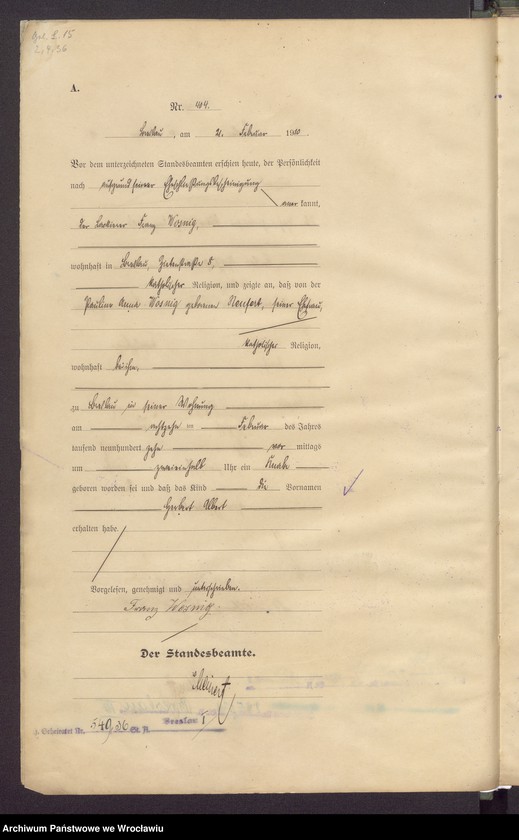 A.
Nr. 414.
Breslau, am 21. Februar 1910.
Vor dem unterzeichneten Standesbeamten erschien heute, der Persönlichkeit
nach auf Grund seiner Eheschließungsbescheinigung
anerkannt,
der Franz Wosnig,
wohnhaft in Breslau, Zietenstraße 8,
katholischer Religion, und zeigte an, daß von der
Pauline Anna Wosnig geborenen seiner Ehefrau,
katholischer Religion,
wohnhaft bei ihm,
zu Breslau in seiner Wohnung
am achtzehnten Februar des Jahres
tausend neunhundert zehn vormittags
um zweieinhalb Uhr ein Knabe
geboren worden sei und daß das Kind die Vornamen
Herbert Albert
erhalten habe.
Vorgelesen, genehmigt und unterschrieben.
Franz Wosnig.
Der Standesbeamte.
Geheiratet Nr. 549/36 St. A. Breslau I
Archiwum Państwowe we Wrocławiu